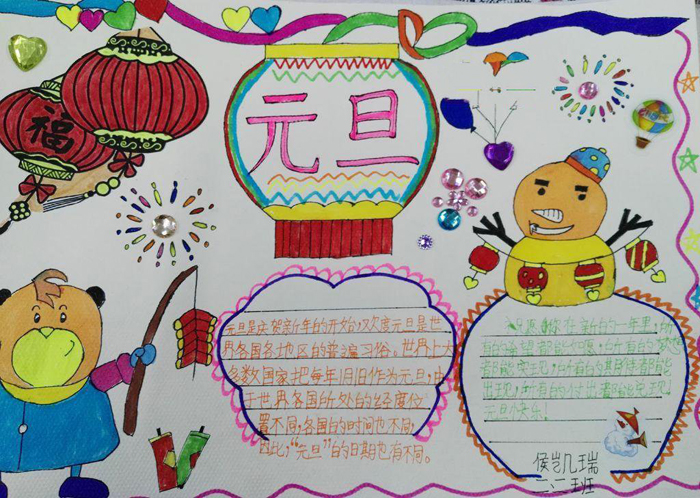 福
元旦
元旦是庆贺新年的开始,欢度元旦是世
界各国各地区的普遍习俗。世界上大
多数国家把每年1月1日作为元旦,由
于世界各国所处的经度位
置不同,各国的时间也不同,
因此,"元旦"的日期也有不同。
祝愿你在新的一年里,所
有的希望都能如愿,所有的梦想
都能实现,所有的期待都能
出现,所有的付出都能兑现!
元旦快乐!
侯岂凡瑞
二、二班